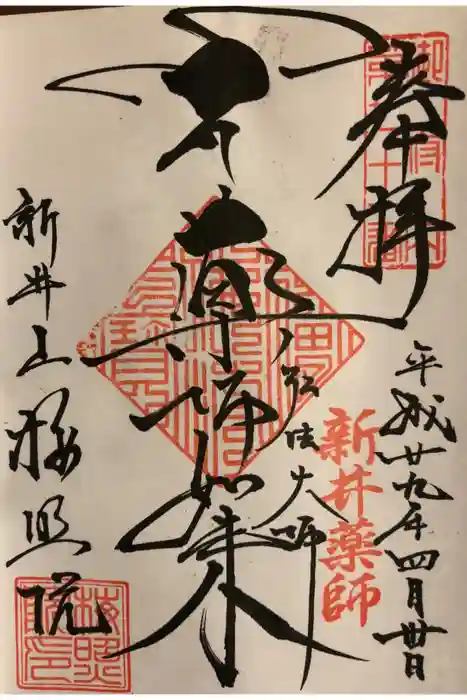 奉拝
平成廿九年四月廿日
新井薬師
弘法大師
薬師如来
新井山梅照院
梅照院印